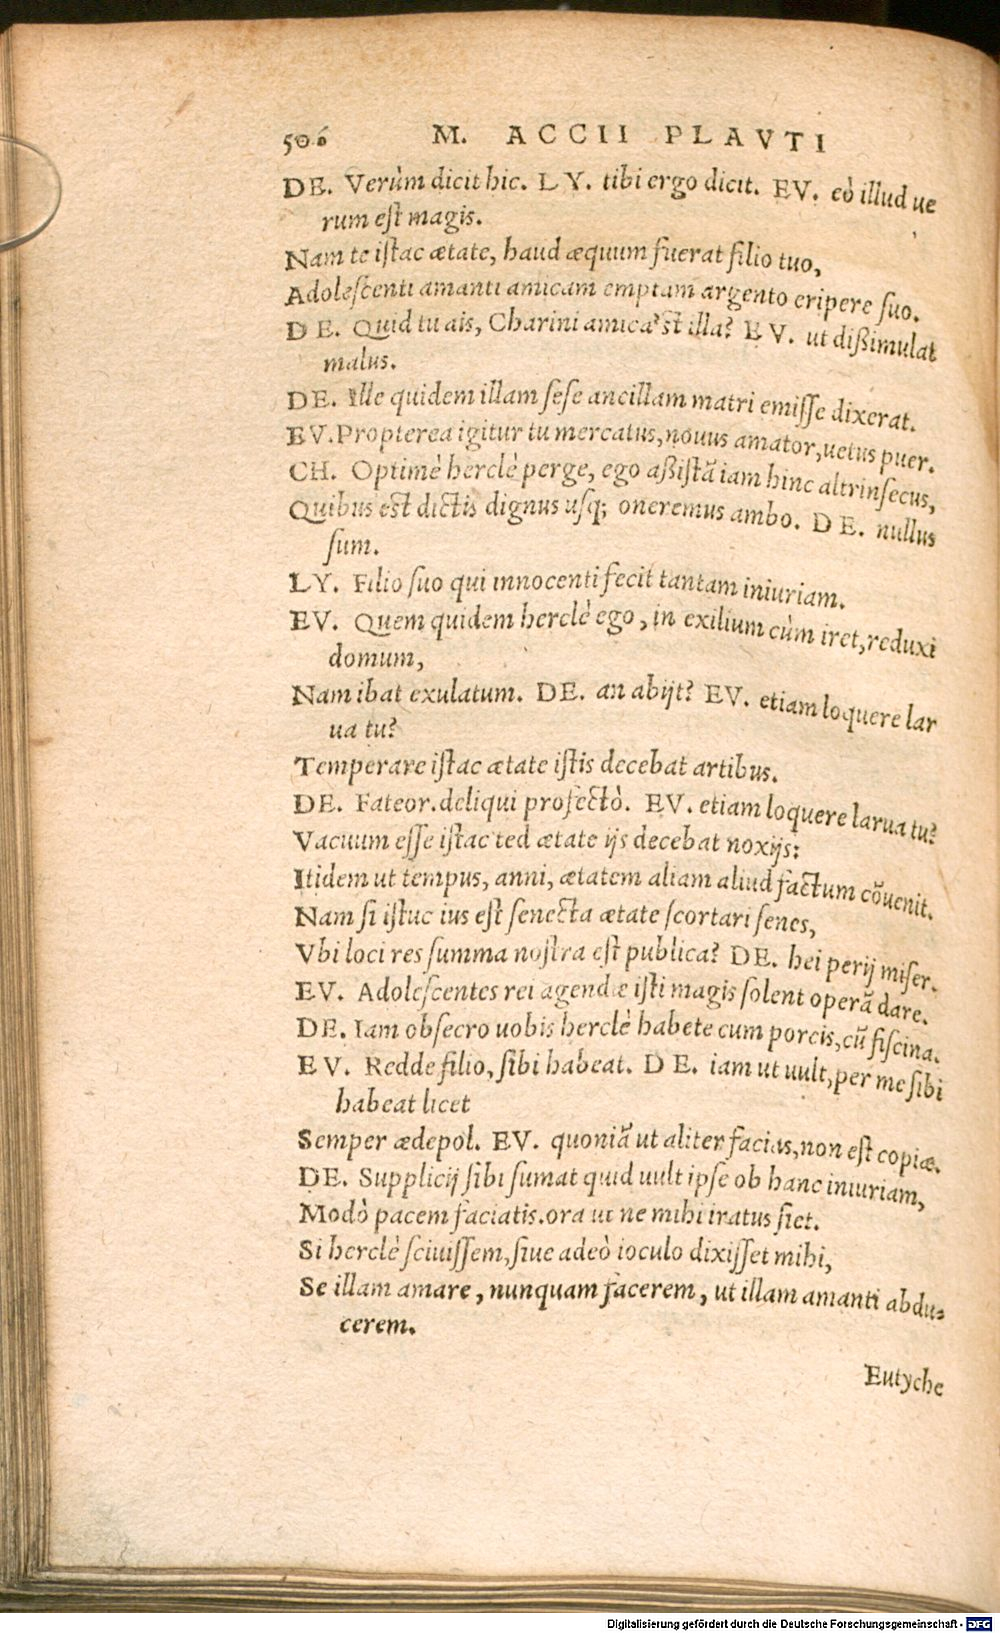 506 M. ACCII PLAVTI
DE. Verùm dicit hic. LY. tibi ergo dicit. EV. eò illud ue
rum est magis.
Nam te istac ætate, haud æquum fuerat filio tuo,
Adolescenti amanti amicam emptam argento eripere suo.
DE. Quid tu ais, Charini amica'st illa? EV. ut dißimulat
malus.
DE. Ille quidem illam sese ancillam matri emisse dixerat.
EV. Propterea igitur tu mercatus, nouus amator, uetus puer.
CH. Optimè herclè perge, ego aßistā iam hinc altrinsecus,
Quibus est dictis dignus usq; oneremus ambo. DE. nullus
sum.
LY. Filio suo qui innocenti fecit tantam iniuriam.
EV. Quem quidem herclè ego, in exilium cùm iret, reduxi
domum,
Nam ibat exulatum. DE. an abijt? EV. etiam loquere lar
ua tu?
Temperare istac ætate istis decebat artibus.
DE. Fateor. deliqui profectò. EV. etiam loquere larua tu?
Vacuum esse istac ted ætate ijs decebat noxijs:
Itidem ut tempus, anni, ætatem aliam aliud factum cōuenit.
Nam si istuc ius est senecta ætate scortari senes,
Vbi loci res summa nostra est publica? DE. hei perij miser.
EV. Adolescentes rei agendæ isti magis solent operā dare.
DE. Iam obsecro uobis herclè habete cum porcis, cū fiscina.
EV. Redde filio, sibi habeat. DE. iam ut uult, per me sibi
habeat licet
Semper ædepol. EV. quoniā ut aliter facias, non est copiæ.
DE. Supplicij sibi sumat quid uult ipse ob hanc iniuriam,
Modò pacem faciatis. ora ut ne mihi iratus siet.
Si herclè sciuissem, siue adeò ioculo dixisset mihi,
Se illam amare, nunquam facerem, ut illam amanti abdu-
cerem.
Eutyche
Digitalisierung gefördert durch die Deutsche Forschungsgemeinschaft - DFG